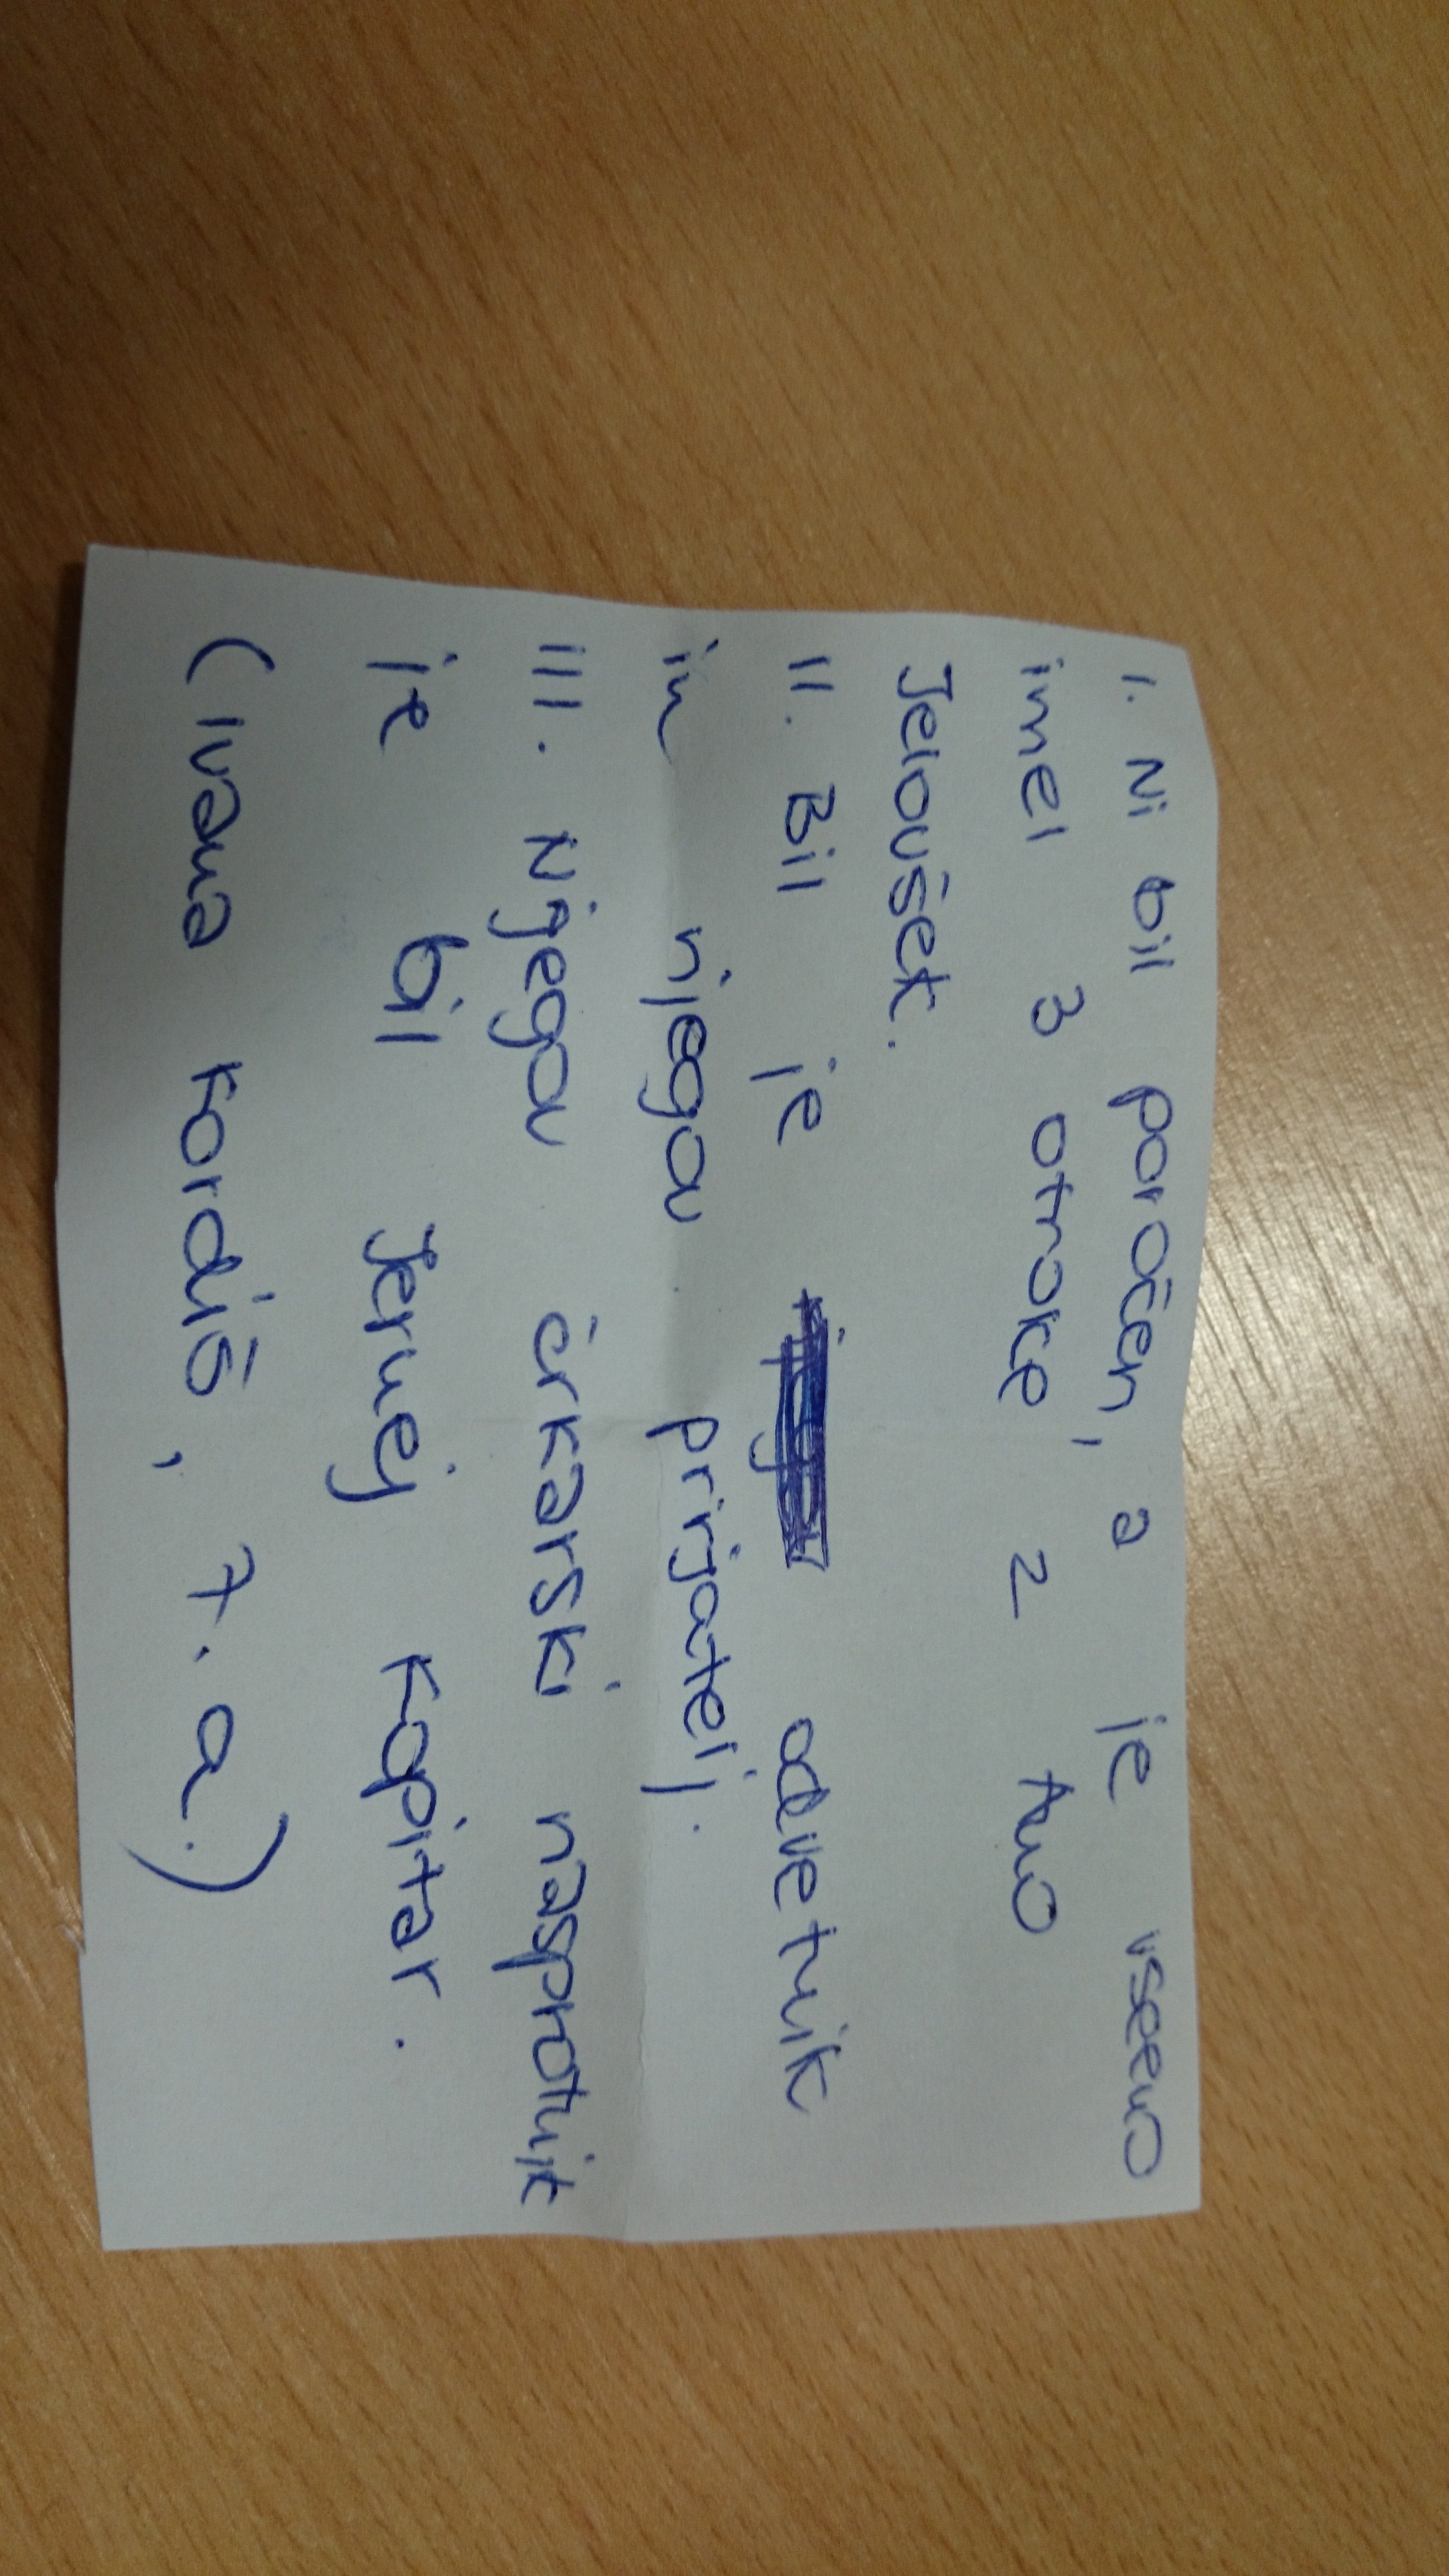 I. Ni bil poročen, a je vseeno
imel 3 otroke z Ano
Jelovšek.
II. Bil je odvetnik
in njegov prijatelj.
III. Njegov črkarski nasprotnik
je bil Jernej Kopitar.
(Ivana Kordiš, 7. a.)